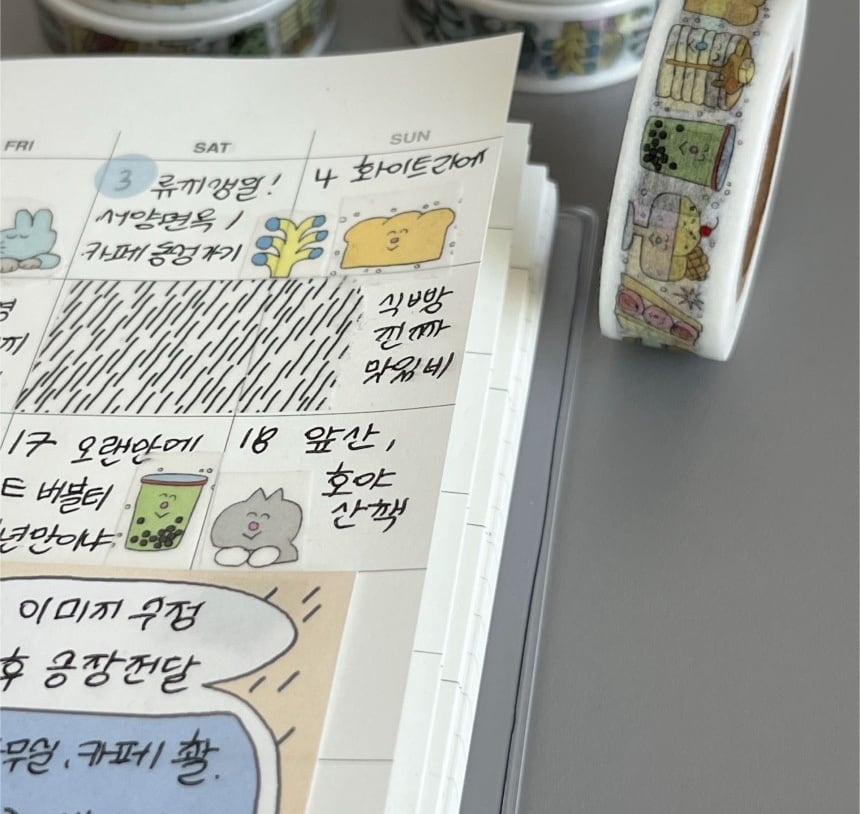 FRI SAT SUN
3 류끼생일! 4 화이트라이
서양면옥 /
카페 동경가기
식빵
진짜
맛있네
17 오랜만에 18 앞산,
트 버블티 호야
년만이야 산책
이미지 수정
후 공장전달
무실, 카페 촬.